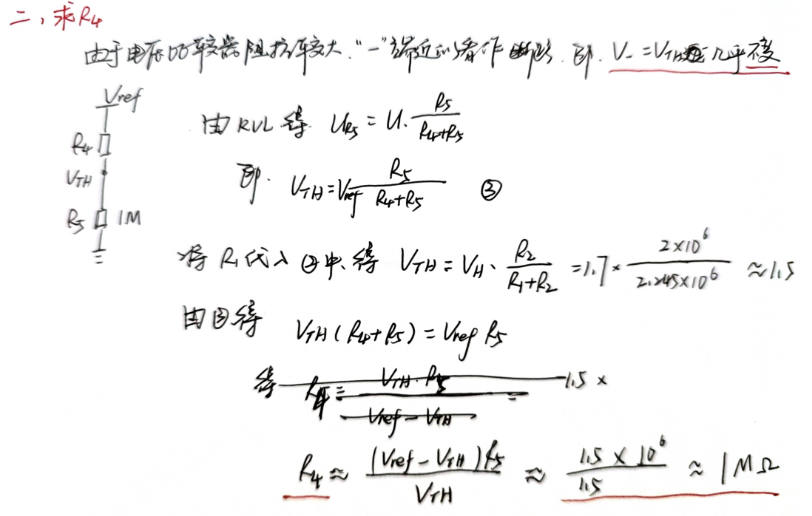 二、求R4
由于电压比较器阻抗较大."一"端近似看作断路.即.V- = VTH 几乎不变
Vref
R4
VTH
R5 1M
由KVL得 UR5 = U· R5/(R4+R5)
即. VTH = Vref R5/(R4+R5) ③
将R1代入②中.得 VTH = VH· R2/(R1+R2) = 1.7 × 2×10^6/(2.245×10^6) ≈ 1.5
由③得 VTH(R4+R5) = Vref R5
得 R4 = VTH·R5/(Vref-VTH) = 1.5 ×
R4 ≈ (Vref-VTH)R5/VTH ≈ 1.5×10^6/1.5 ≈ 1MΩ